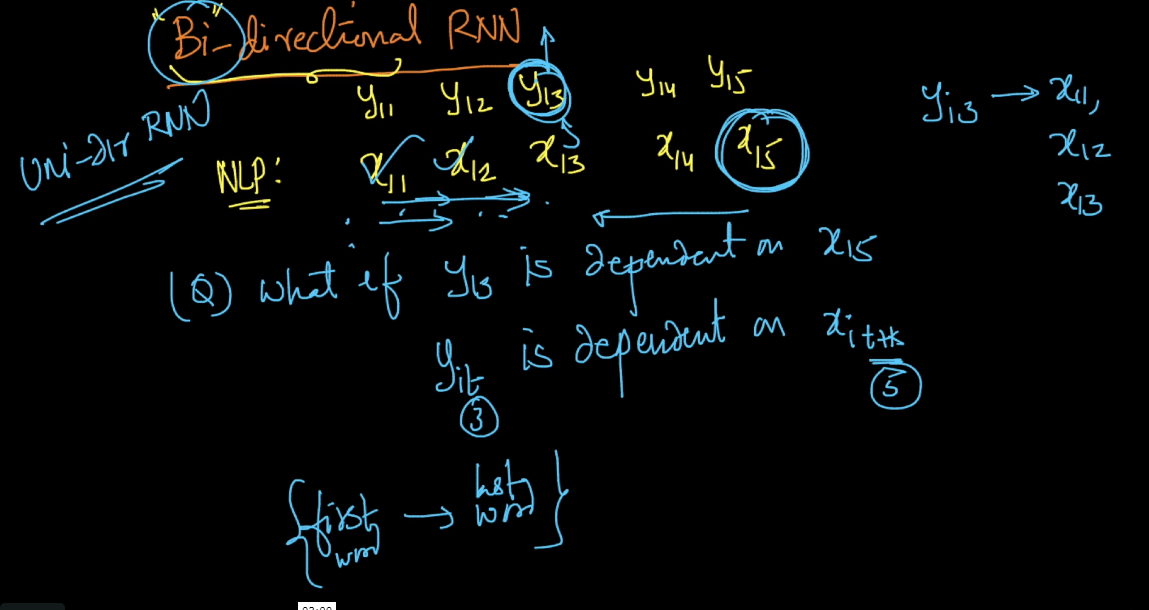 "Bi-"directional RNN
y11 y12 y13 y14 y15
Uni-dir RNN
NLP: x11 x12 x13 x14 x15
yi3 → x11,
x12
x13
(Q) What if y13 is dependent on x15
yit is dependent on xit+k
3 5
{first word → last word}